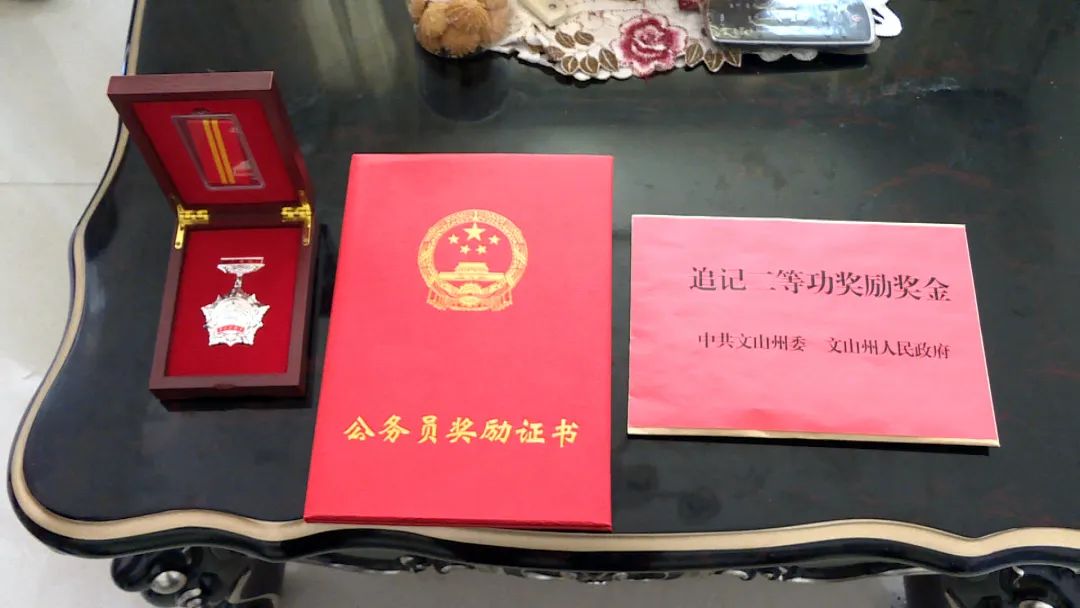 公务员奖励证书
追记二等功奖励奖金
中共文山州委 文山州人民政府